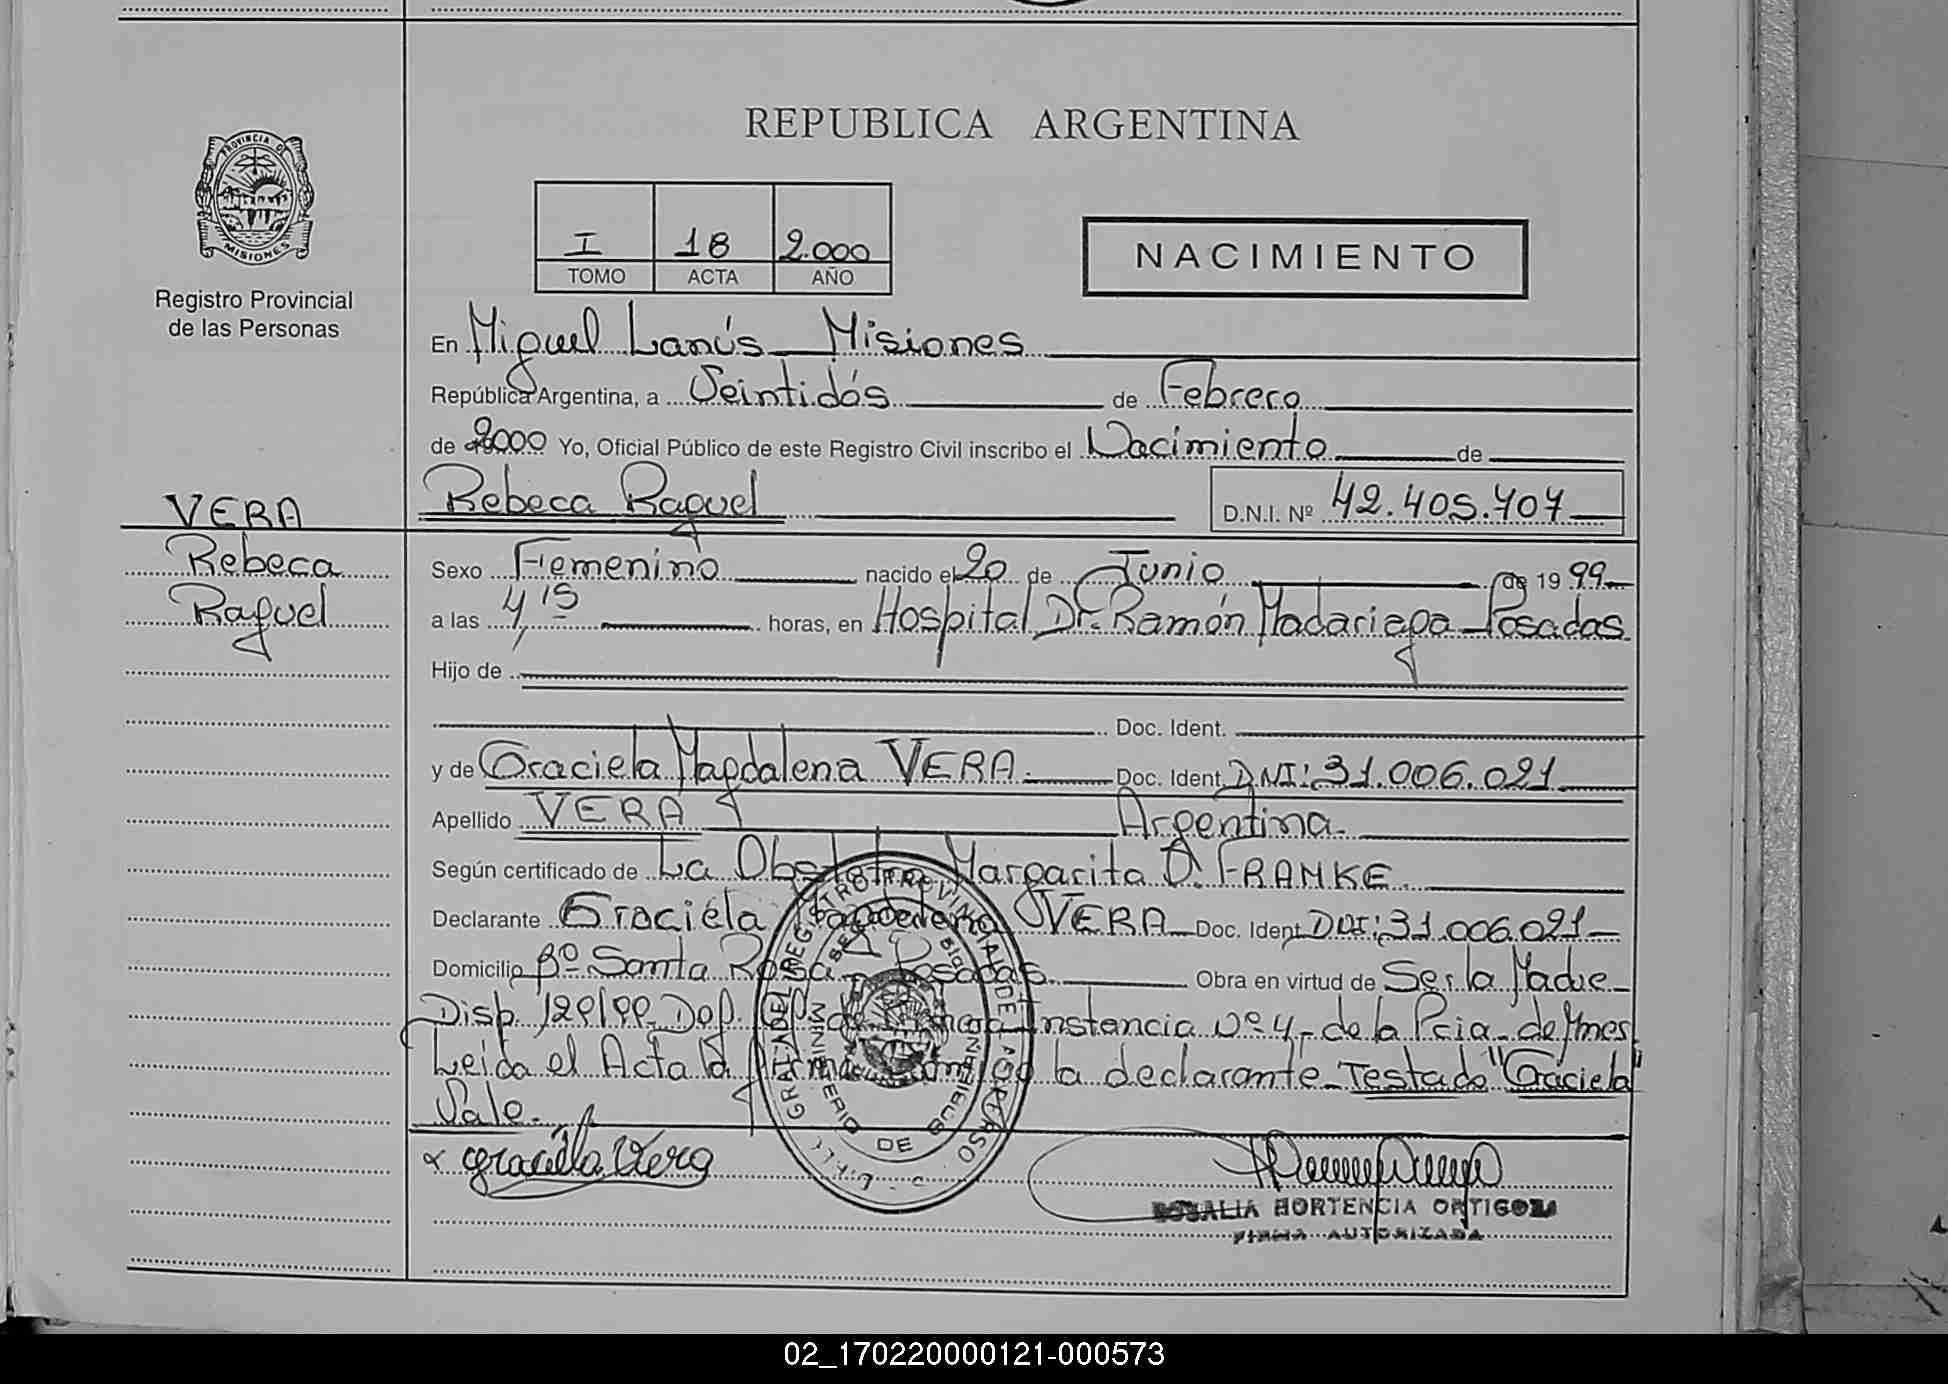 REPUBLICA ARGENTINA
PROVINCIA DE
MISIONES
Registro Provincial
de las Personas
I 18 2.000
TOMO ACTA AÑO
NACIMIENTO
En Miguel Lanús Misiones
República Argentina, a Veintidós de Febrero
de 2000 Yo, Oficial Público de este Registro Civil inscribo el Nacimiento de
VERA
Rebeca
Raquel
Rebeca Raquel D.N.I. Nº 42.405.707
Sexo Femenino nacido el 20 de Junio de 1999
a las 4,15 horas, en Hospital Dr. Ramón Madariaga Posadas
Hijo de
Doc. Ident.
y de Graciela Magdalena VERA. Doc. Ident. DNI: 31.006.021
Apellido VERA Argentina.
Según certificado de La Obstetra Margarita D. FRANKE
Declarante Graciela Magdalena VERA Doc. Ident. DNI: 31.006.021
Domicilio Bº Santa Rosa - Posadas Obra en virtud de Ser la Madre
Disp. 129/99 Def. de Primera Instancia Nº 4, de la Pcia. de Mnes
Leída el Acta la firma conmigo la declarante Testado "Graciela"
Vale.
x graciela Vera
MINISTERIO DE
ROSALIA HORTENCIA ORTIGOZA
FIRMA AUTORIZADA
02_170220000121-000573